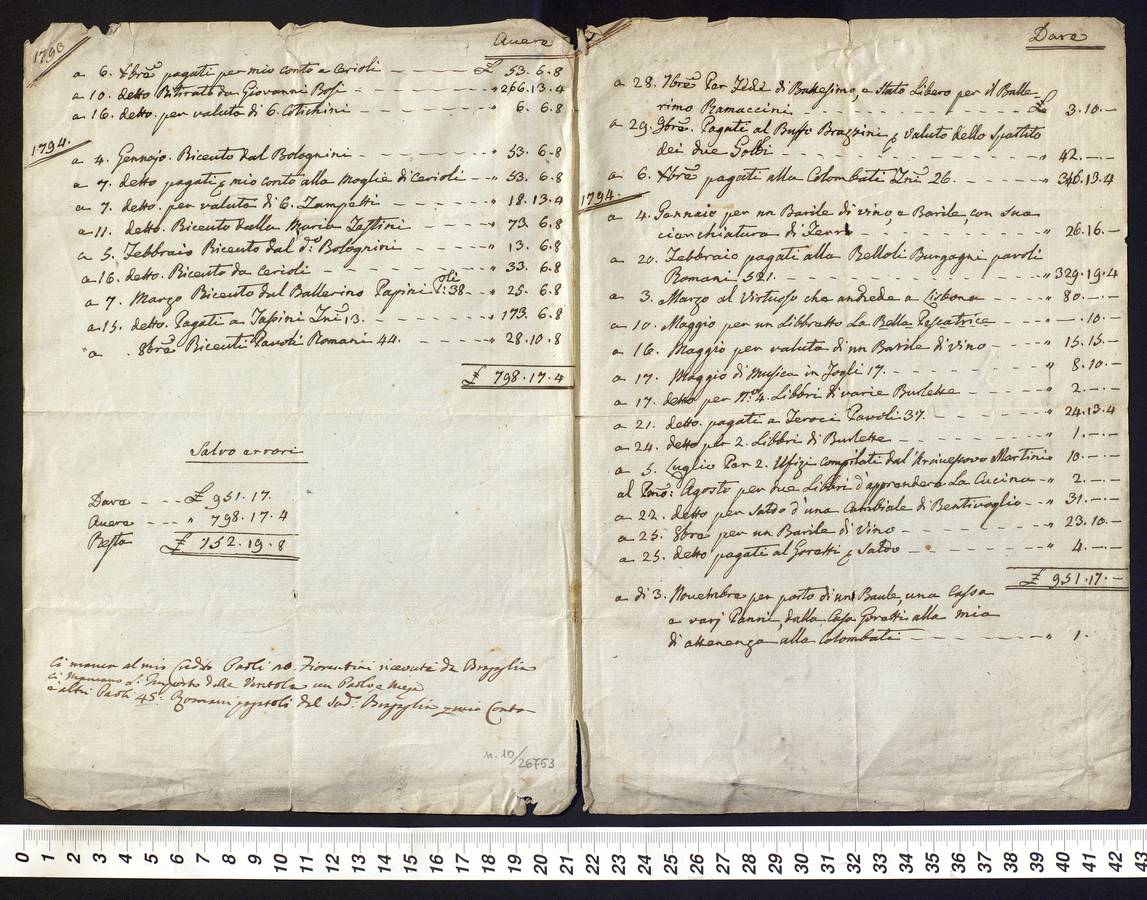 1793
Avere
a 6. Xbre pagati per mio conto a Cerioli £ 53.6.8
a 10. detto Ritirati da Giovanni Bosi " 266.13.4
a 16. detto per valuta di 6. Cotichini " 6.6.8
1794.
a 4. Gennajo Ricevuto dal Bolognini " 53.6.8
a 7. detto pagati p mio conto alla Moglie di Cerioli " 53.6.8
a 7. detto per valuta di 6. Zampetti " 18.13.4
a 11. detto. Ricevuto dalla Maria Testini " 73.6.8
a 5. Febbraio Ricevuto dal do. Bolognini " 13.6.8
a 16. detto. Ricevuto da Cerioli " 33.6.8
a 7. Marzo Ricevuto dal Ballerino Papini Poli 38 " 25.6.8
a 15. detto. Pagati a Tassini Zni 13. " 173.6.8
a 8bre Ricevuti Pavoli Romani 44. " 28.10.8
£ 798.17.4
Salvo errori
Dare £ 951.17.
Avere " 798.17.4
Resta £ 152.19.8
Ci manca al mio Credito Paoli 20. Fiorentini ricevuti da Bragaglia
Ci mancano Importo della Ventola un Paolo e Mezo
e altri Paoli 45: Romani pagatoli dal Sud. Bragaglia p mio Conto
n. 10/26753
Dare
a 28. 7bre Per Fedi di Battesimo, e Stato Libero per il Balle-
rimo Ramaccini £ 3.10.—
a 29. 9bre. Pagati al Buffo Brazzini p valuta dello Spartito
dei due Gobbi " 42.—.—
a 6. Xbre pagati alla Colombati Zni 26. " 346.13.4
1794.
a 4. Gennaio per un Barile di vino, e Barile, con sua
cierchiatura di Ferro " 26.16.—
a 20. Febbraio pagati alla Belloli Burgagni pavoli
Romani 521. " 329.19.4
a 3. Marzo al Virtuoso che andede a Lisbona " 80.—.—
a 10. Maggio per un Libbretto La Bella Pescatrice " —.10.—
a 16. Maggio per valuta di un Barile di vino " 15.15.—
a 17. Maggio di Musica in Fogli 17. " 8.10.—
a 17. detto per No. 4. Libbri di varie Burlette " 2.—.—
a 21. detto. pagati a Feroci Pavoli 37. " 24.13.4
a 24. detto per 2. Libbri di Burlette " 1.—.—
a 5. Luglio Per 2. Ufizi compilati dal Arcivescovo Martini " 10.—.—
al Pmo: Agosto per due Libbri d'apprendere La Cucina " 2.—.—
a 22. detto per Saldo d'una Cambiale di Bentivoglio " 31.—.—
a 25. 8bre per un Barile di Vino " 23.10.—
a 25. detto pagati al Goretti p Saldo " 4.—.—
£ 951.17.—
a di 3. Novembre per porto di un Baule, una Cassa
a varj Panni, dalla Casa Goretti alla mia
di attenenza alla Colombati " 1.
0 1 2 3 4 5 6 7 8 9 10 11 12 13 14 15 16 17 18 19 20 21 22 23 24 25 26 27 28 29 30 31 32 33 34 35 36 37 38 39 40 41 42 43